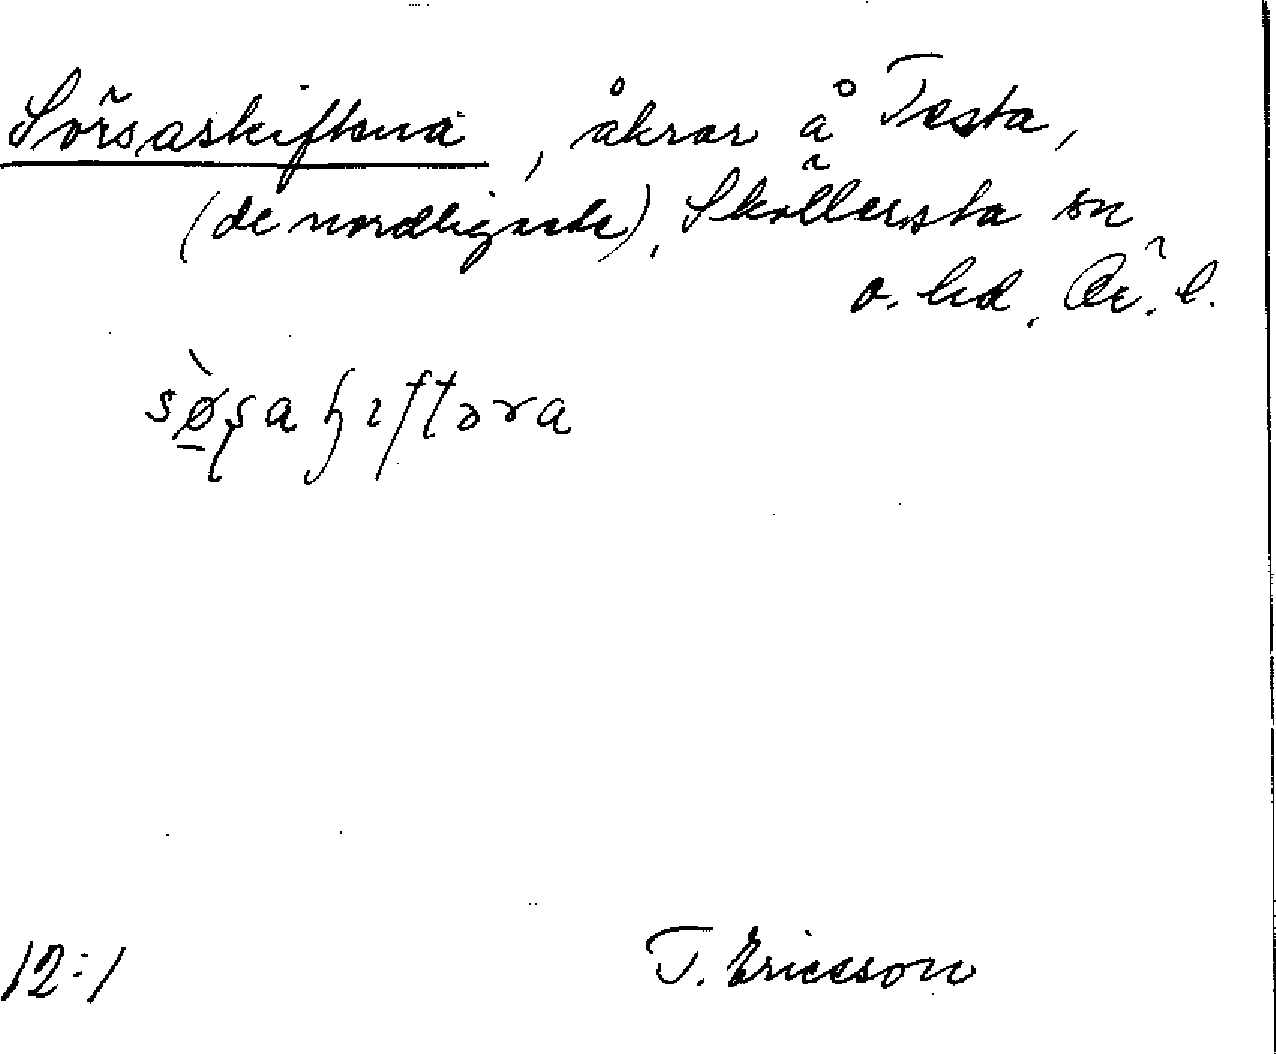 Sörsaskiftena, åkrar å Testa,
(de nordligaste), Sköllersta sn
o. hd, Ör. l.
sø̀ʂaɧɩftəra
12:1 T. Ericsson